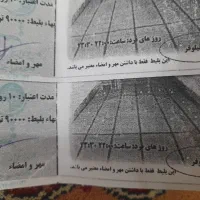 مدت اعتبار: ۱۰ رو
روز های فرد: ساعت: ۲۲:۰۰ - ۲۳:۳۰
بهاء بلیط: ۹۰۰۰۰
این بلیط فقط با داشتن مهر و امضاء معتبر می باشد.
مهر و امضاء
مدت اعتبار: ۱۰ رو
روز های فرد: ساعت: ۲۲:۰۰ - ۲۳:۳۰
بهاء بلیط: ۹۰۰۰۰
این بلیط فقط با داشتن مهر و امضاء معتبر می باشد.
مهر و امضاء